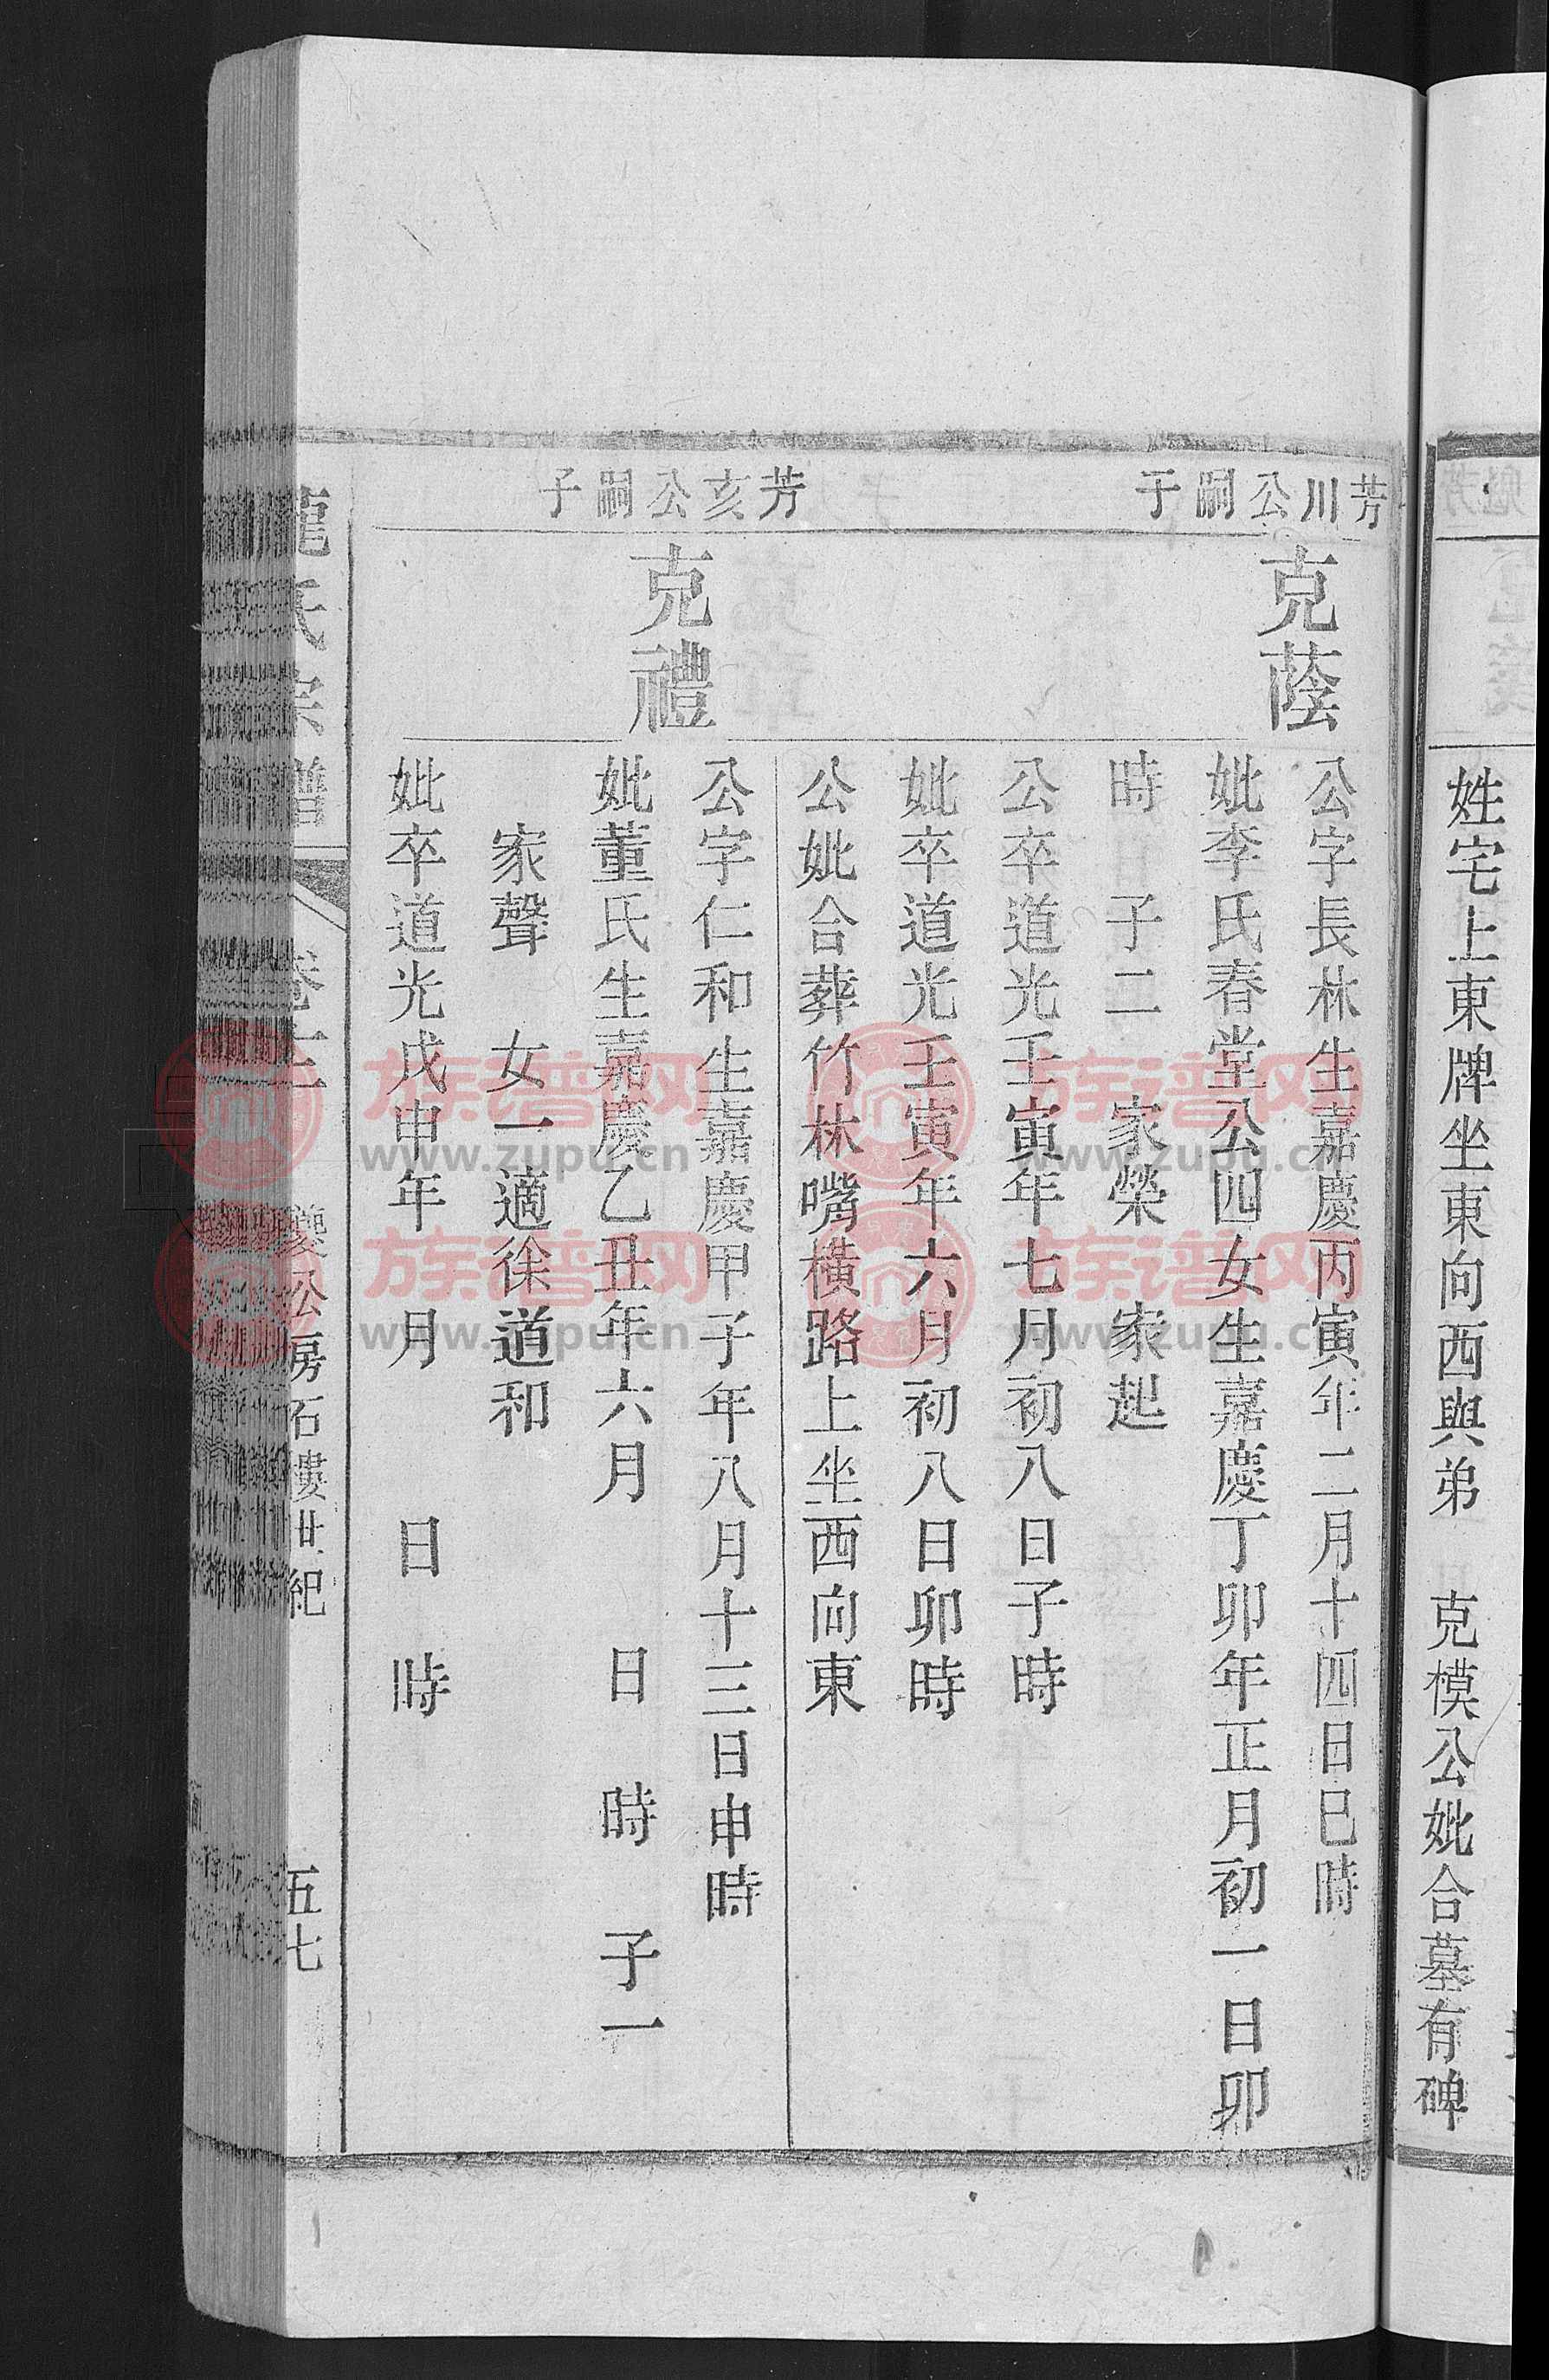 姓宅上東牌坐東向西與弟　克模公妣合墓有碑
芳川公嗣子
克蔭
公字長林生嘉慶丙寅年二月十四日巳時
妣李氏春堂公四女生嘉慶丁卯年正月初一日卯
時　子二　家榮　家起
公卒道光壬寅年七月初八日子時
妣卒道光壬寅年六月初八日卯時
公妣合葬竹林嘴橫路上坐西向東
芳亥公嗣子
克禮
公字仁和生嘉慶甲子年八月十三日申時
妣董氏生嘉慶乙丑年六月　日　時　子一
家聲　女一適徐道和
妣卒道光戊申年　月　日　時
龍氏宗譜
夔公房石塿廿紀
五七
族谱网
www.zupu.cn
族谱网
www.zupu.cn
族谱网
www.zupu.cn
族谱网
www.zupu.cn